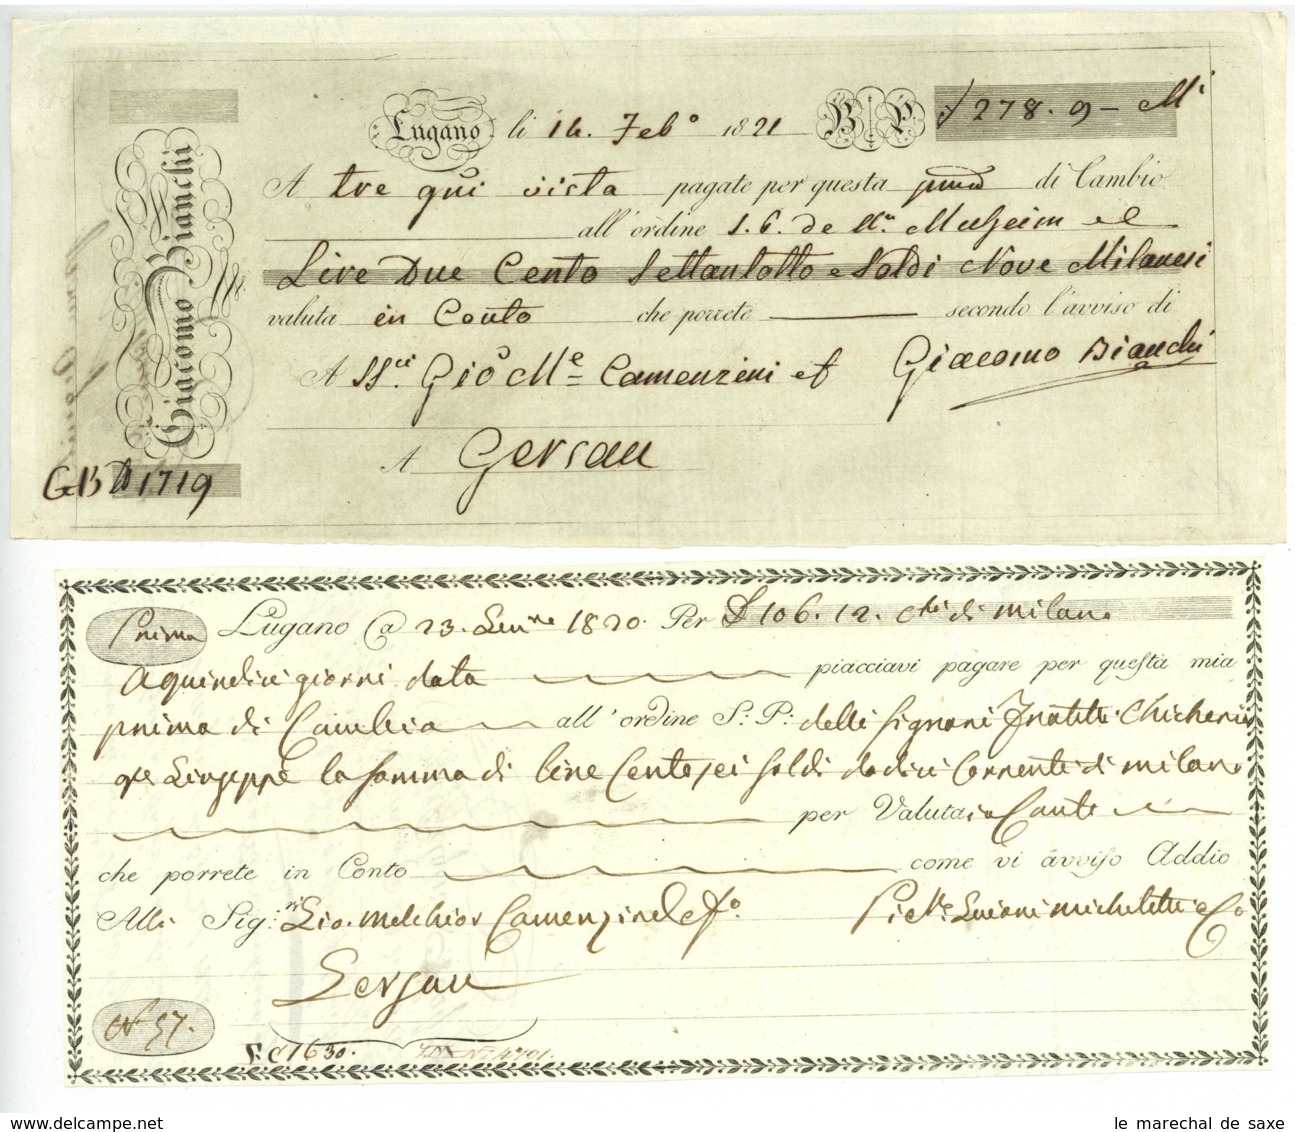 Lugano li 14. Febº 1821 B P 278. 9 – Mⁱ
A tre qui vista pagate per questa di Cambio
all'ordine S. G. de Mᵃ Muheim el
Lire Due Cento Settantotto e Soldi Nove Milanesi
valuta in Conto che porrete secondo l'avviso di
A SS.ri Gio Me Camenzini et Giacomo Bianchi
A Gersau
Giacomo Bianchi
GB 1719
Prima Lugano @ 23. 1820. Per 106. 12. di Milano
A quindici giorni data piacciavi pagare per questa mia
prima di Cambio all'ordine S. P. delli Signori Fratelli Chicherio
Giuseppe la somma di lire Centosei soldi dodici Correnti di Milano
per Valuta in Conto
che porrete in Conto come vi avviso Addio
Alli Sig.ri Gio. Melchior Camenzind e Fº.
Gersau
Nº 57.
1630.
le marechal de saxe